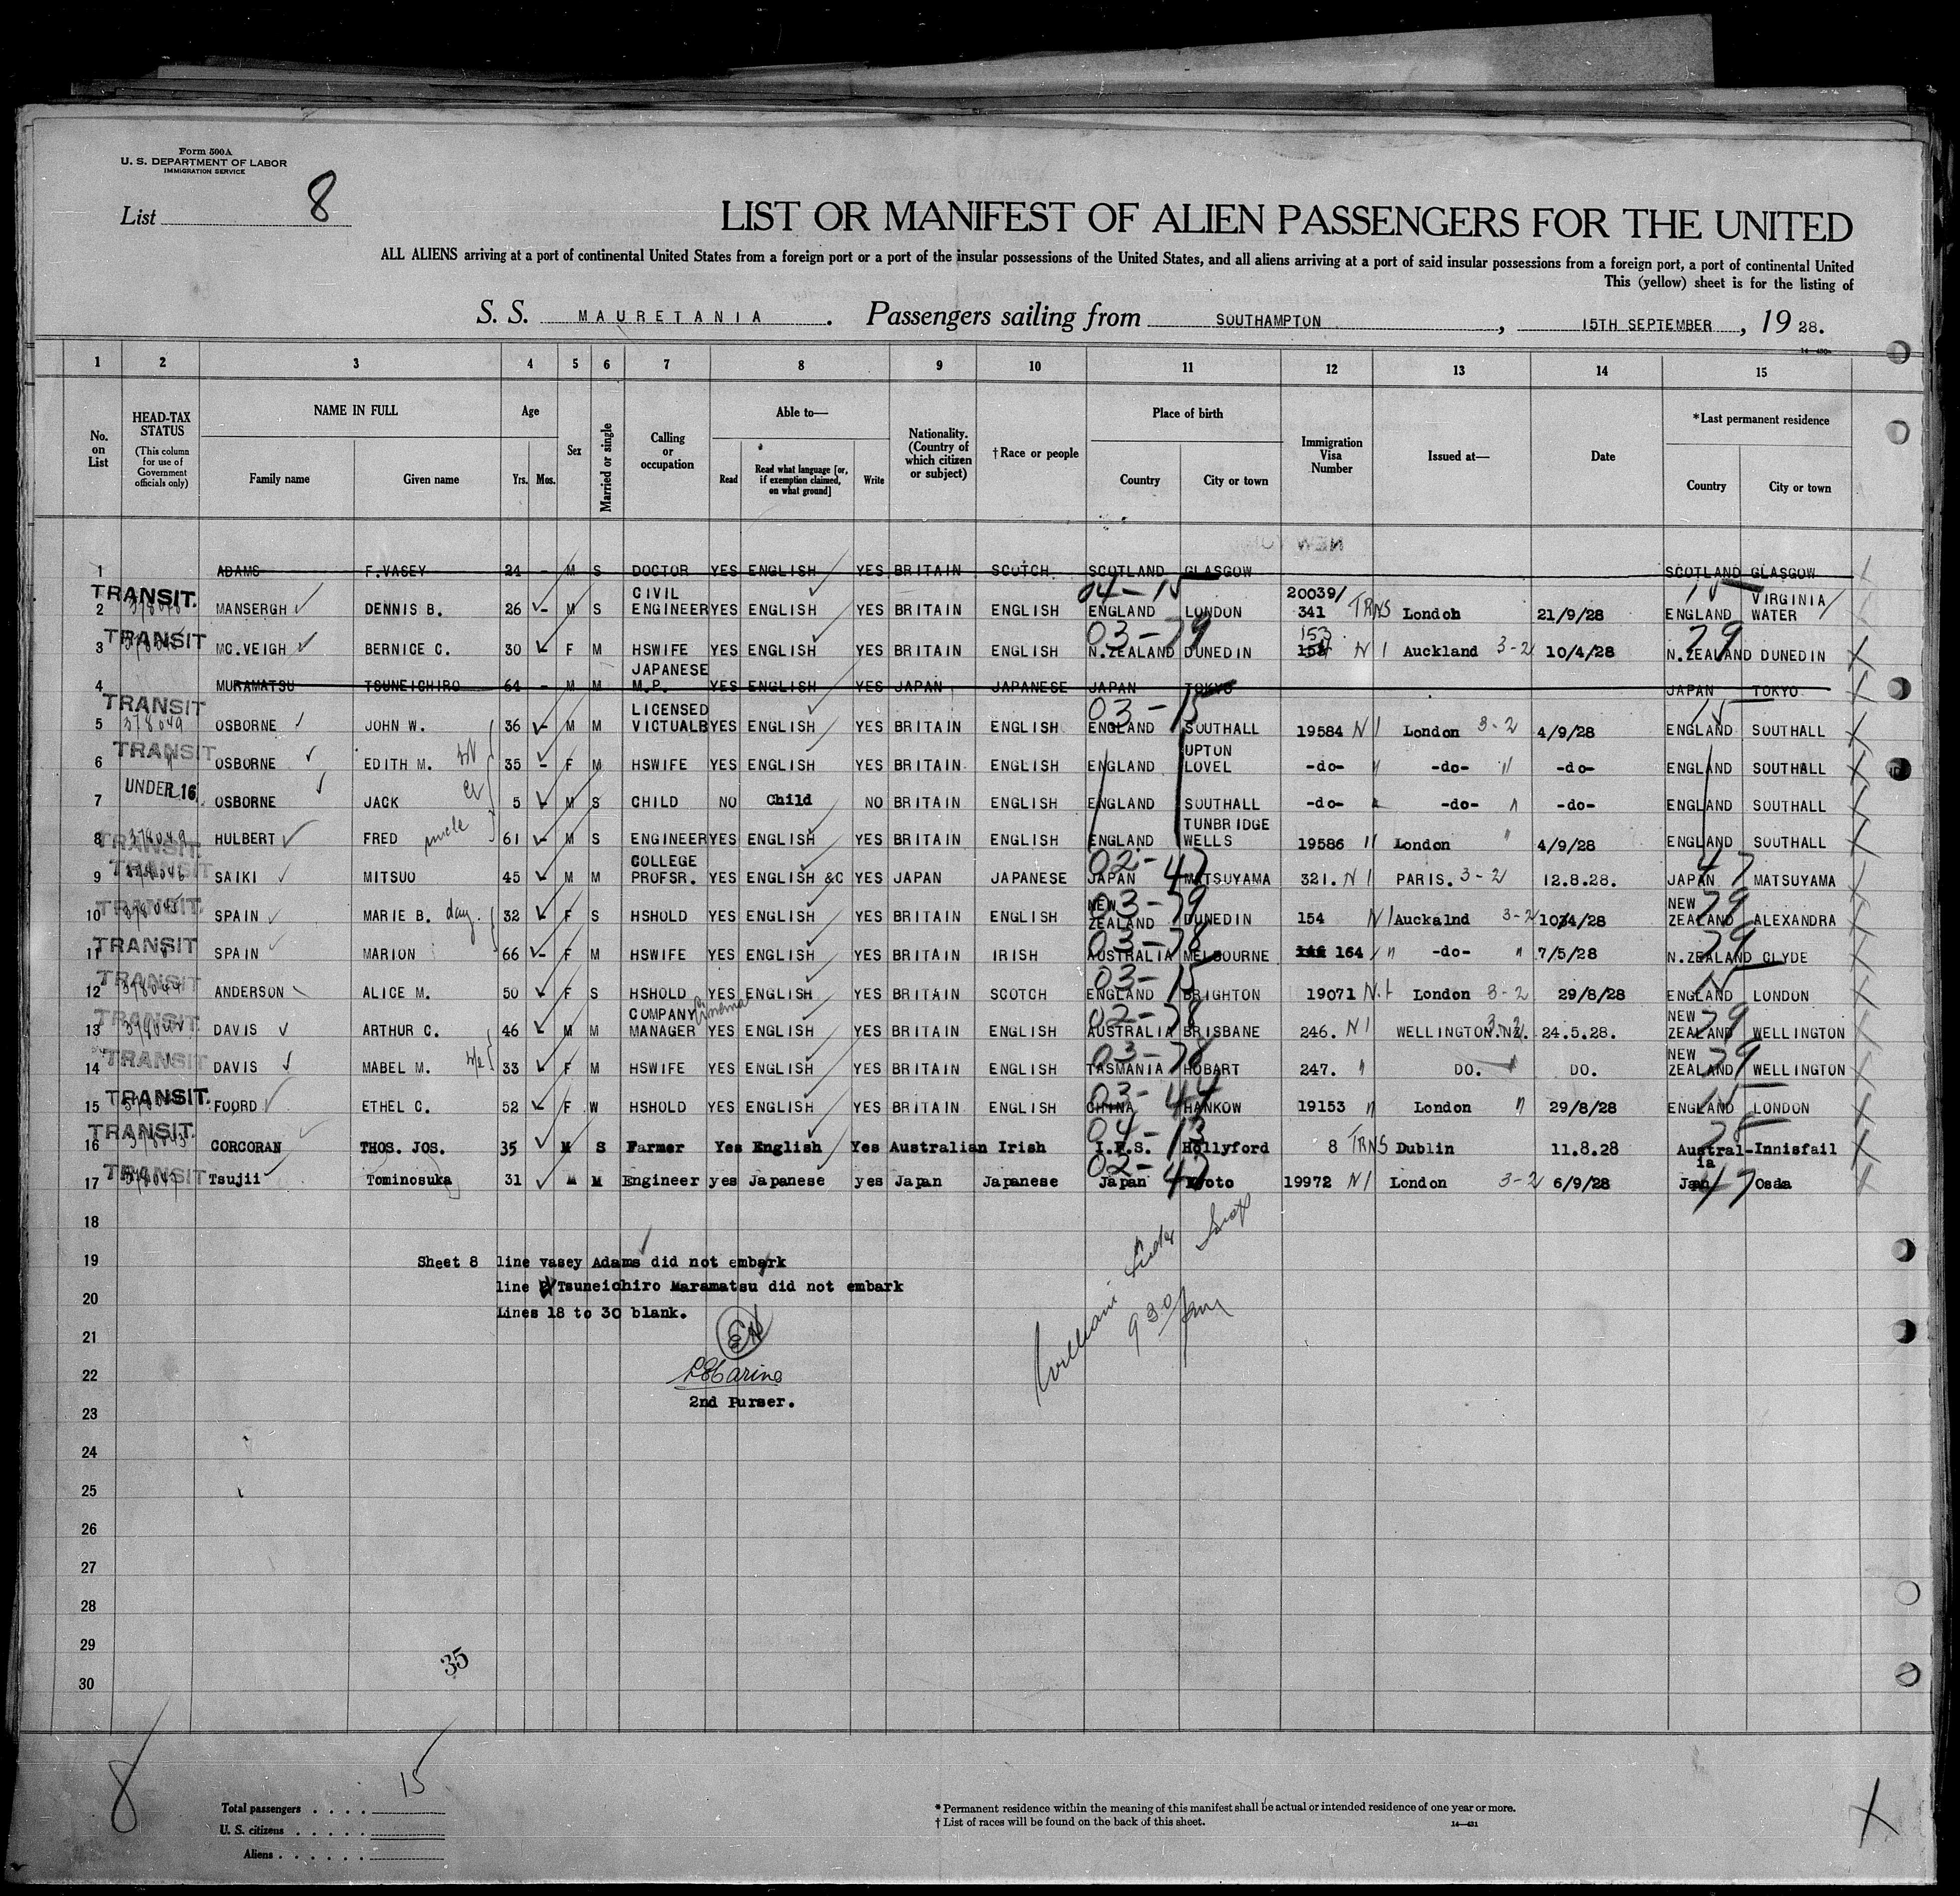 Form 500A
U. S. DEPARTMENT OF LABOR
IMMIGRATION SERVICE
List 8
LIST OR MANIFEST OF ALIEN PASSENGERS FOR THE UNITED
ALL ALIENS arriving at a port of continental United States from a foreign port or a port of the insular possessions of the United States, and all aliens arriving at a port of said insular possessions from a foreign port, a port of continental United
This (yellow) sheet is for the listing of
S. S. MAURETANIA. Passengers sailing from SOUTHAMPTON, 15TH SEPTEMBER, 19 28.
1 2 3 4 5 6 7 8 9 10 11 12 13 14 15
No. on List
HEAD-TAX STATUS (This column for use of Government officials only)
NAME IN FULL Family name Given name
Age Yrs. Mos.
Sex
Married or single
Calling or occupation
Able to— Read Read what language [or, if exemption claimed, on what ground] Write
Nationality. (Country of which citizen or subject)
†Race or people
Place of birth Country City or town
Immigration Visa Number
Issued at—
Date
*Last permanent residence Country City or town
1 ADAMS F.VASEY 24 - M S DOCTOR YES ENGLISH YES BRITAIN SCOTCH SCOTLAND GLASGOW SCOTLAND GLASGOW
2 TRANSIT. MANSERGH DENNIS B. 26 - M S CIVIL ENGINEER YES ENGLISH YES BRITAIN ENGLISH 04-15 ENGLAND LONDON 20039/341 TRNS London 21/9/28 ENGLAND VIRGINIA WATER
3 TRANSIT MC.VEIGH BERNICE C. 30 F M HSWIFE YES ENGLISH YES BRITAIN ENGLISH 03-79 N.ZEALAND DUNEDIN 153 N1 Auckland 3-2 10/4/28 79 N.ZEALAND DUNEDIN
4 MURAMATSU TSUNEICHIRO 64 - M M JAPANESE M.P. YES ENGLISH YES JAPAN JAPANESE JAPAN TOKYO JAPAN TOKYO
5 TRANSIT 378049 OSBORNE JOHN W. 36 - M M LICENSED VICTUALR YES ENGLISH YES BRITAIN ENGLISH 03-15 ENGLAND SOUTHALL 19584 N1 London 3-2 4/9/28 15 ENGLAND SOUTHALL
6 TRANSIT OSBORNE EDITH M. 35 - F M HSWIFE YES ENGLISH YES BRITAIN ENGLISH ENGLAND UPTON LOVEL -do- " -do- " -do- ENGLAND SOUTHALL
7 UNDER 16 OSBORNE JACK 5 M S CHILD NO Child NO BRITAIN ENGLISH ENGLAND SOUTHALL -do- -do- " -do- ENGLAND SOUTHALL
8 378049 TRANSIT. HULBERT FRED uncle 61 - M S ENGINEER YES ENGLISH YES BRITAIN ENGLISH ENGLAND TUNBRIDGE WELLS 19586 " London " 4/9/28 ENGLAND SOUTHALL
9 TRANSIT SAIKI MITSUO 45 M M COLLEGE PROFSR. YES ENGLISH &C YES JAPAN JAPANESE 02-47 JAPAN MATSUYAMA 321. N1 PARIS. 3-2 12.8.28. 47 JAPAN MATSUYAMA
10 TRANSIT. SPAIN MARIE B. 32 F S HSHOLD YES ENGLISH YES BRITAIN ENGLISH 03-79 NEW ZEALAND DUNEDIN 154 N1 Auckalnd 3-2 10/4/28 79 NEW ZEALAND ALEXANDRA
11 TRANSIT SPAIN MARION 66 - F M HSWIFE YES ENGLISH YES BRITAIN IRISH 03-78 AUSTRALIA MELBOURNE 164 " -do- " 7/5/28 79 N.ZEALAND CLYDE
12 TRANSIT ANDERSON ALICE M. 50 F S HSHOLD YES ENGLISH YES BRITAIN SCOTCH 03-15 ENGLAND BRIGHTON 19071 N.1 London 3-2 29/8/28 15 ENGLAND LONDON
13 TRANSIT DAVIS ARTHUR C. 46 M M COMPANY MANAGER Cinema YES ENGLISH YES BRITAIN ENGLISH 02-78 AUSTRALIA BRISBANE 246. N1 WELLINGTON.NZ. 3-2 24.5.28. 79 NEW ZEALAND WELLINGTON
14 TRANSIT DAVIS MABEL M. 33 F M HSWIFE YES ENGLISH YES BRITAIN ENGLISH 03-78 TASMANIA HOBART 247. " DO. " DO. 79 NEW ZEALAND WELLINGTON
15 TRANSIT. FOORD ETHEL C. 52 F W HSHOLD YES ENGLISH YES BRITAIN ENGLISH 03-44 CHINA HANKOW 19153 " London " 29/8/28 15 ENGLAND LONDON
16 TRANSIT. CORCORAN THOS. JOS. 35 M S Farmer Yes English Yes Australian Irish 04-13 I.F.S. Hollyford 8 TRNS Dublin 11.8.28 Austral-ia Innisfail
17 TRANSIT Tsujii Tominosuka 31 M M Engineer yes Japanese yes Japan Japanese 02-47 Japan Kyoto 19972 N1 London 3-2 6/9/28 47 Japan Osaka
18
19 Sheet 8 line vasey Adams did not embark
line Tsuneichiro Maramatsu did not embark
20 Lines 18 to 30 blank.
21
22
2nd Purser.
William
9 30
23
24
25
26
27
28
29
35
30
8
15
Total passengers
U. S. citizens
Aliens
* Permanent residence within the meaning of this manifest shall be actual or intended residence of one year or more.
† List of races will be found on the back of this sheet.
14—431